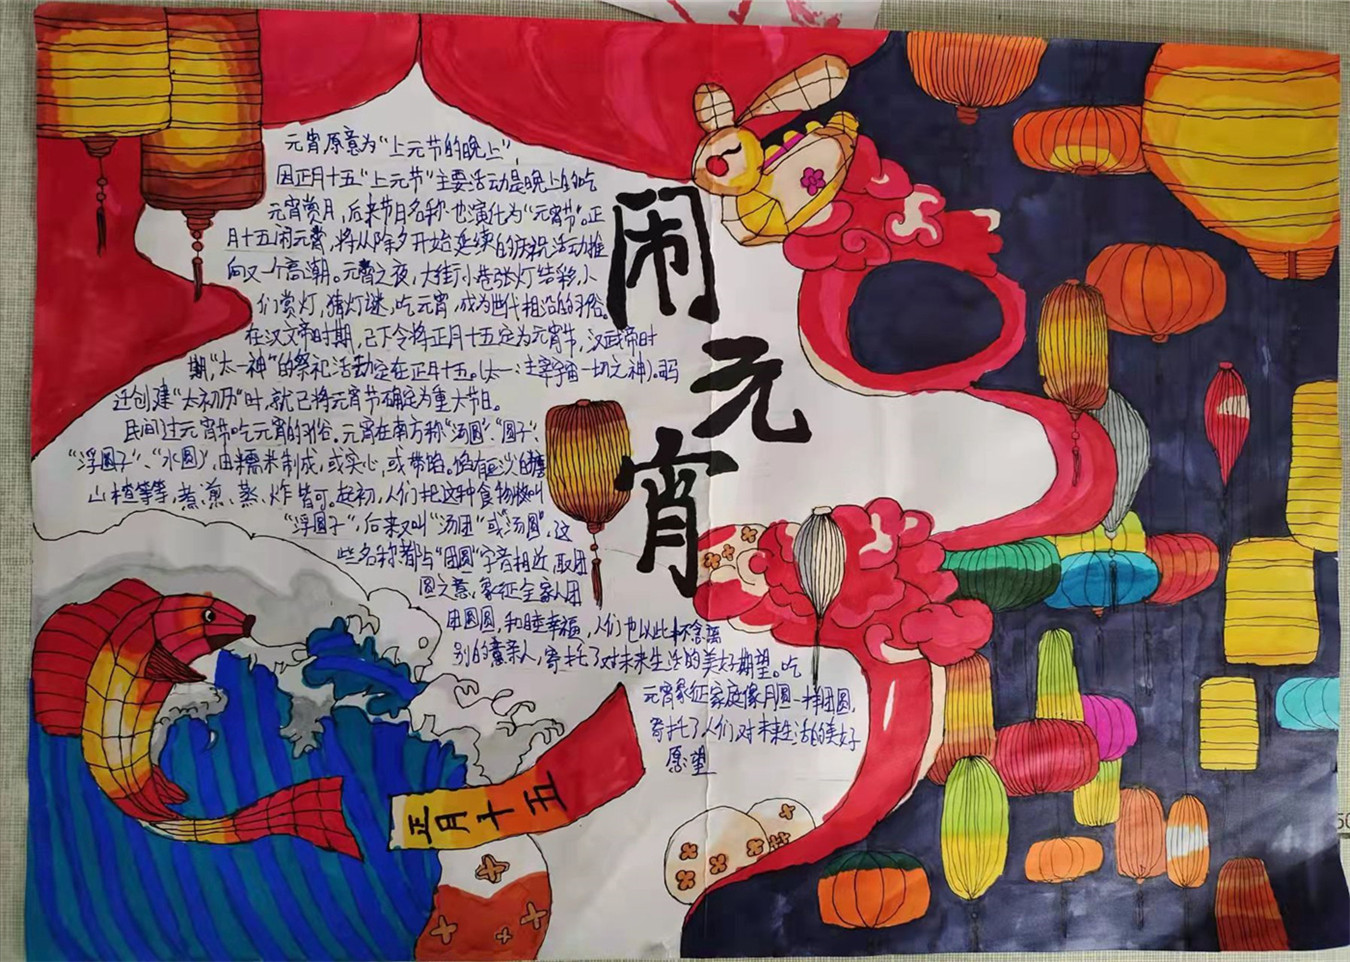 元宵原意为“上元节的晚上”，
因正月十五“上元节”主要活动是晚上的吃
元宵赏月，后来节日名称也演化为“元宵节”。正
月十五闹元宵，将从除夕开始延续的庆祝活动推
向又一个高潮。元宵之夜，大街小巷张灯结彩，人
们赏灯，猜灯谜，吃元宵，成为世代相沿的习俗。
在汉文帝时期，已下令将正月十五定为元宵节，汉武帝时
期，“太一神”的祭祀活动定在正月十五。(太一：主宰宇宙一切之神)。司
迁创建“太初历”时，就已将元宵节确定为重大节日。
民间过元宵节吃元宵的习俗。元宵在南方称“汤圆”、“圆子”、
“浮圆子”、“水圆”，由糯米制成，或实心，或带馅。馅有豆沙、白糖
山楂等等，煮、煎、蒸、炸皆可。起初，人们把这种食物叫
“浮圆子”，后来又叫“汤团”或“汤圆”，这
些名称都与“团圆”字音相近，取团
圆之意，象征全家人团
团圆圆，和睦幸福，人们也以此怀念离
别的亲人，寄托了对未来生活的美好期望。吃
元宵象征家庭像月圆一样团圆，
寄托了人们对未来生活的美好
愿望
闹元宵
正月十五